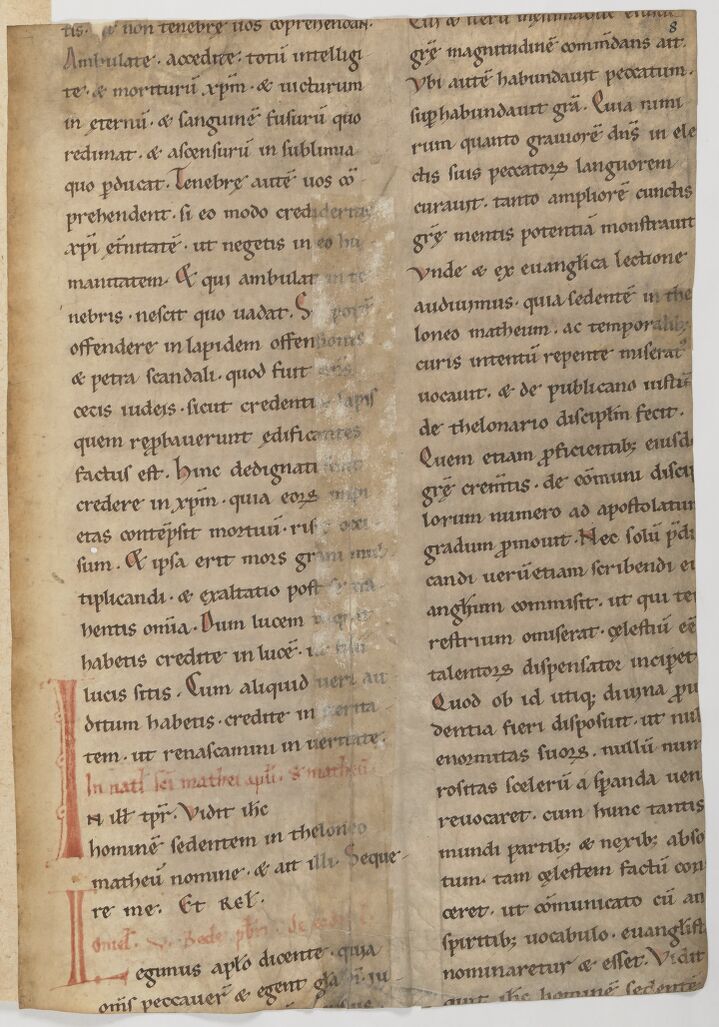 tis. & non tenebrę uos cōprehendant.
Ambulate. accedite. totū intelligi
te. & moriturū xp̄m. & uicturum
in ęternū. & sanguinē fusurū quo
redimat. & ascensurū in sublimia
quo p̄ducat. Tenebrę autē uos cō
prehendent. si eo modo credideritis
xp̄i et̄nitatē. ut negetis in eo hu
manitatem. & qui ambulat in te
nebris. nescit quo uadat. S
offendere in lapidem offensionis
& petra scandali. quod fuit
cęcis iudeis. sicut credenti lapis
quem rep̄bauerunt ędificantes
factus est. hinc dedignati sunt
credere in xp̄m. quia eoꝝ impi
etas contēpsit mortuū. ris
sum. & ipsa erit mors grani mul
tiplicandi. & exaltatio post
hentis om̄ia. Dum lucem
habetis credite in lucē. ut filii
lucis sitis. Cum aliquid ueri au
ditum habetis. credite in uerita
tem. ut renascamini in ueritate.
In natl̄ sc̄i mathei apl̄i. s̄ matheū.
N ill̄ tp̄r. Vidit ih̄c
hominē sedentem in theloneo
matheū nomine. & ait illi. Seque
re me. Et Rel̄.
Omel̄. Bede p̄bri. de eadē
Legimus ap̄lo dicente. quia
om̄s peccauer̄ & egent gl̄a
8
grę̄ magnitudinē com̄dans ait.
Vbi autē habundauit peccatum.
sup̄habundauit gr̄a. Quia nimi
rum quanto grauiorē dn̄s in ele
ctis suis peccatoꝝ languorem
curauit. tanto ampliorē cunctis
grę̄ mentis potentiā monstrauit
Vnde & ex euangl̄ica lectione
audiuimus. quia sedentē in the
loneo matheum. ac temporalibꝫ
curis intentū repente miserat᷒
uocauit. & de publicano iustū
de thelonario disciplin̄ fecit.
Quem etiam p̄ficientibꝫ eiusdē
grę̄ crem̄tis. de cōmuni discip
lorum numero ad apostolatum
gradum p̄mouit. Nec solū p̄di
candi uerūetiam scribendi ei
anghium commisit. ut qui ter
restrium omiserat. cęlestiū eē
talentoꝝ dispensator inciperet
Quod ob id utiqꝫ diuina prou
dentia fieri disposuit. ut nul
enormitas suoꝝ. nullū num
rositas scelerū a sp̄anda uen
reuocaret. cum hunc tantis
mundi partibꝫ & nexibꝫ abso
tum. tam cęlestem factū con
ceret. ut cōmunicato cū an
spiritibꝫ uocabulo. euanglist
nominaretur & esset. Vidit
ih̄c hominē sedentē